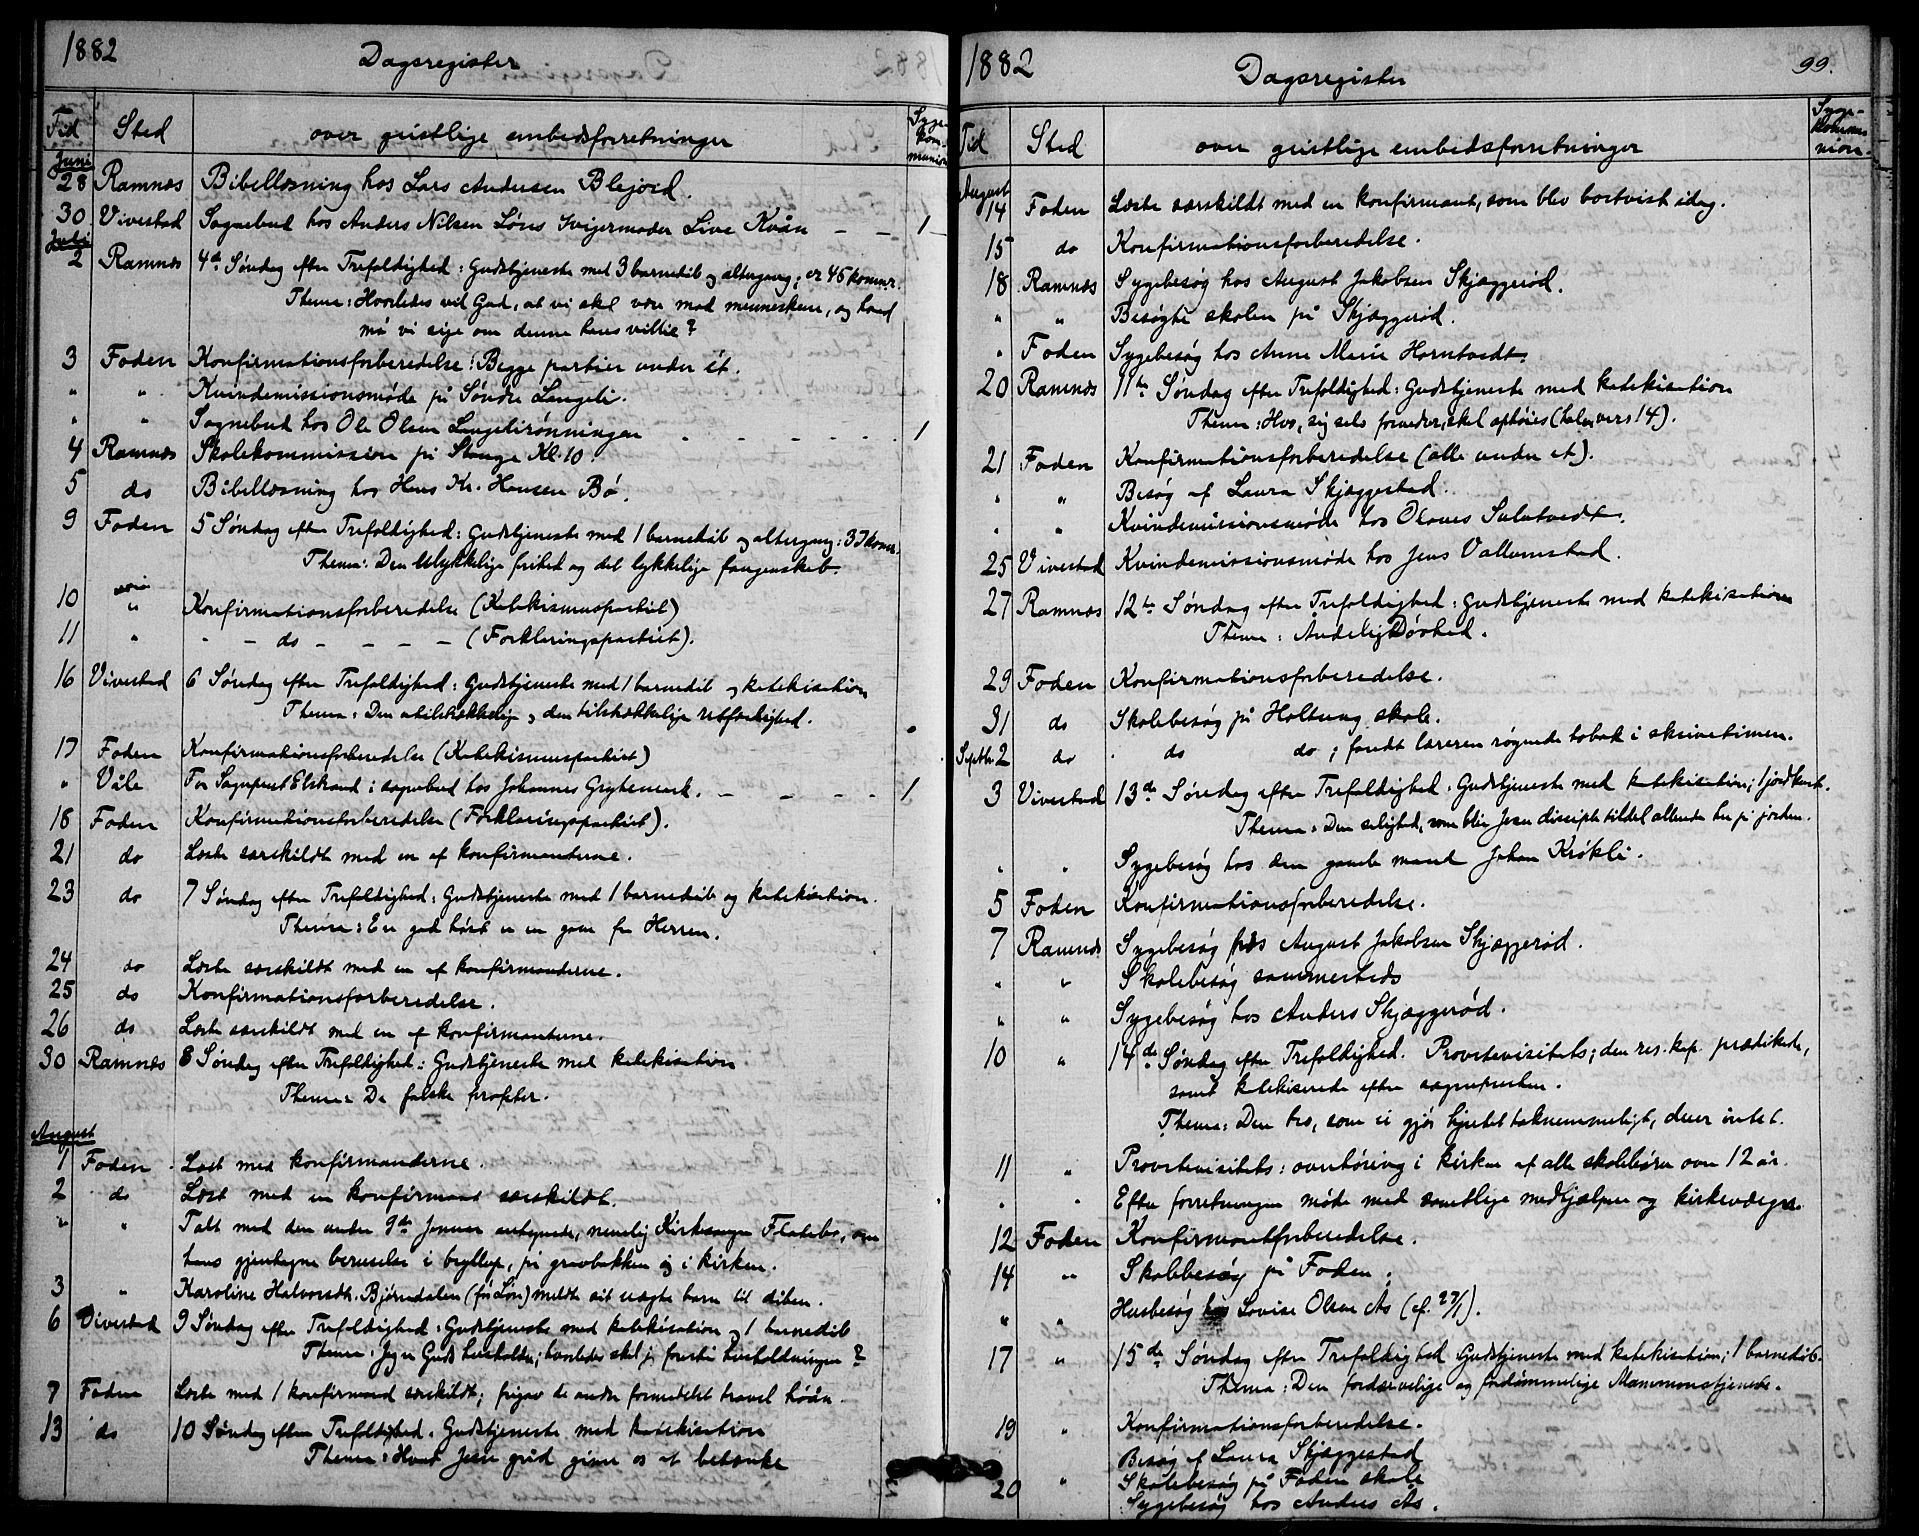 1882
Dagsregister
Tid Sted over geistlige embedsforretninger Syge-kom-munion
Juni
28 Ramnæs Bibellæsning hos Lars Andersen Blejord.
30 Vivestad Sognebud hos Anders Nilsen Løns Svigermoder Live Kvån – – 1
Juli
2 Ramnæs 4de Søndag efter Trefoldighed: Gudstjeneste med 3 barnedåb og altergang; 45 kommun.
Thema: Hvorledes vil Gud, at vi skal være mod menneskene, og hvad
må vi sige om denne hans villie?
3 Foden Konfirmationsforberedelse: Begge partier under ét.
" " Kvindemissionsmøde på Søndre Langeli.
" " Sognebud hos Ole Olsen Langelirønningen 1
4 Ramnæs Skolekommission på Stange Kl. 10
5 do Bibellæsning hos Hans Kr. Hansen Bø.
9 Foden 5 Søndag efter Trefoldighed: Gudstjeneste med 1 barnedåb og altergang: 37 komm.
Thema: Den ulykkelige frihed og det lykkelige fangenskab.
10 " Konfirmationsforberedelse (Katekismuspartiet)
11 " – do – – – – (Forklaringspartiet).
16 Vivestad 6 Søndag efter Trefoldighed: Gudstjeneste med 1 barnedåb og katekisation
Thema: Den utilstrækkelige og den tilstrækkelige retfærdighed.
17 Foden Konfirmationsforberedelse (Katekismuspartiet)
" Våle For Sogneprest Elstrand i sognebud hos Johannes Grytenerk. – – – – 1
18 Foden Konfirmationsforberedelse (Forklaringspartiet).
21 do Læste særskildt med en af konfirmanterne.
23 do 7 Søndag efter Trefoldighed: Gudstjeneste med 1 barnedåb og katekisation.
Thema: En god høst er en gave fra Herren.
24 do Læste særskildt med en af konfirmanderne.
25 do Konfirmationsforberedelse.
26 do Læste særskildt med en af konfirmanterne.
30 Ramnæs 8 Søndag efter Trefoldighed: Gudstjeneste med katekisation
Thema: De falske profeter.
August
1 Foden Læst med konfirmanderne.
2 do Læst med en konfirmant særskildt.
" " Talt med den under 9de Januar antegnede, nemlig Kirkesanger Flatebø, om
hans gjentagne beruselse i bryllup, på gravbakken og i kirken.
3 " Karoline Halvorsdtr. Bjørndalen (før Løn) meldte sit uægte barn til dåben.
6 Vivestad 9 Søndag efter Trefoldighed: Gudstjeneste med katekisation og 1 barnedåb
Thema: Jeg er Guds husholder; hvorledes skal jeg forestå husholdningen?
7 Foden Læste med 1 konfirmand særskildt; frigav de andre formedelst travel høån.
13 do 10 Søndag efter Trefoldighed. Gudstjeneste med katekisation
Thema: Hvad Jesu gråd giver os at betænke
1882
Dagsregister
99.
Tid Sted over geistlige embedsforretninger Syge-kommu-nion.
August
14 Foden Læste særskildt med en konfirmant, som blev bortvist idag.
15 do Konfirmationsforberedelse.
18 Ramnæs Sygebesøg hos August Jakobsen Skjæggerød.
" " Besøgte skolen på Skjæggerød.
" Foden Sygebesøg hos Anne Marie Horntvedt.
20 Ramnæs 11te Søndag efter Trefoldighed: Gudstjeneste med katekisation
Thema: Hvo, sig selv fornedrer, skal ophøies (hele vers 14).
21 Foden Konfirmationsforberedelse (alle under et).
" " Besøg af Laura Skjæggestad.
" " Kvindemissionsmøde hos Olaves Sulutvedt.
25 Vivestad Kvindemissionsmøde hos Jens Vallumstad.
27 Ramnæs 12te Søndag efter Trefoldighed: Gudstjeneste med katekisation
Thema: Åndelig Døvhed.
29 Foden Konfirmationsforberedelse.
31 do Skolebesøg på Holtung skole.
Septbr. 2 do do do; fandt læreren røgende tobak i skrivetimen.
3 Vivestad 13de Søndag efter Trefoldighed. Gudstjeneste med katekisation; 1 jordkast.
Thema: Den salighed, som blir Jesu disciple tildel allerede her på jorden.
" " Sygebesøg hos den gamle mand Johan Krøkli.
5 Foden Konfirmationsforberedelse.
7 Ramnæs Sygebesøg hos August Jakobsen Skjæggerød.
" " Skolebesøg sammesteds
" " Sygebesøg hos Anders Skjæggerød.
10 " 14de Søndag efter Trefoldighed. Provstevisitats; den res. kap. prædikede,
samt katekiserede efter sognepresten.
Thema: Den tro, som ei gjør hjertet taknemmeligt, duer intet.
11 " Provstevisitats: overhøring i kirken af alle skolebørn over 12 år.
" " Efter forretningen møde med samtlige medhjælpere og kirkeværger.
12 Foden Konfirmantforberedelse.
14 " Skolebesøg på Foden.
" " Husbesøg hos Lovise Olsen Ås (cf. 27/1).
17 " 15de Søndag efter Trefoldighed Gudstjeneste med katekisation; 1 barnedåb.
Thema: Den fordærvelige og fordømmelige Mammonstjeneste.
19 " Konfirmationsforberedelse.
Besøg af Laura Skjæggestad
20 " Skolebesøg på Foden skole
Sygebesøg hos Anders Ås.